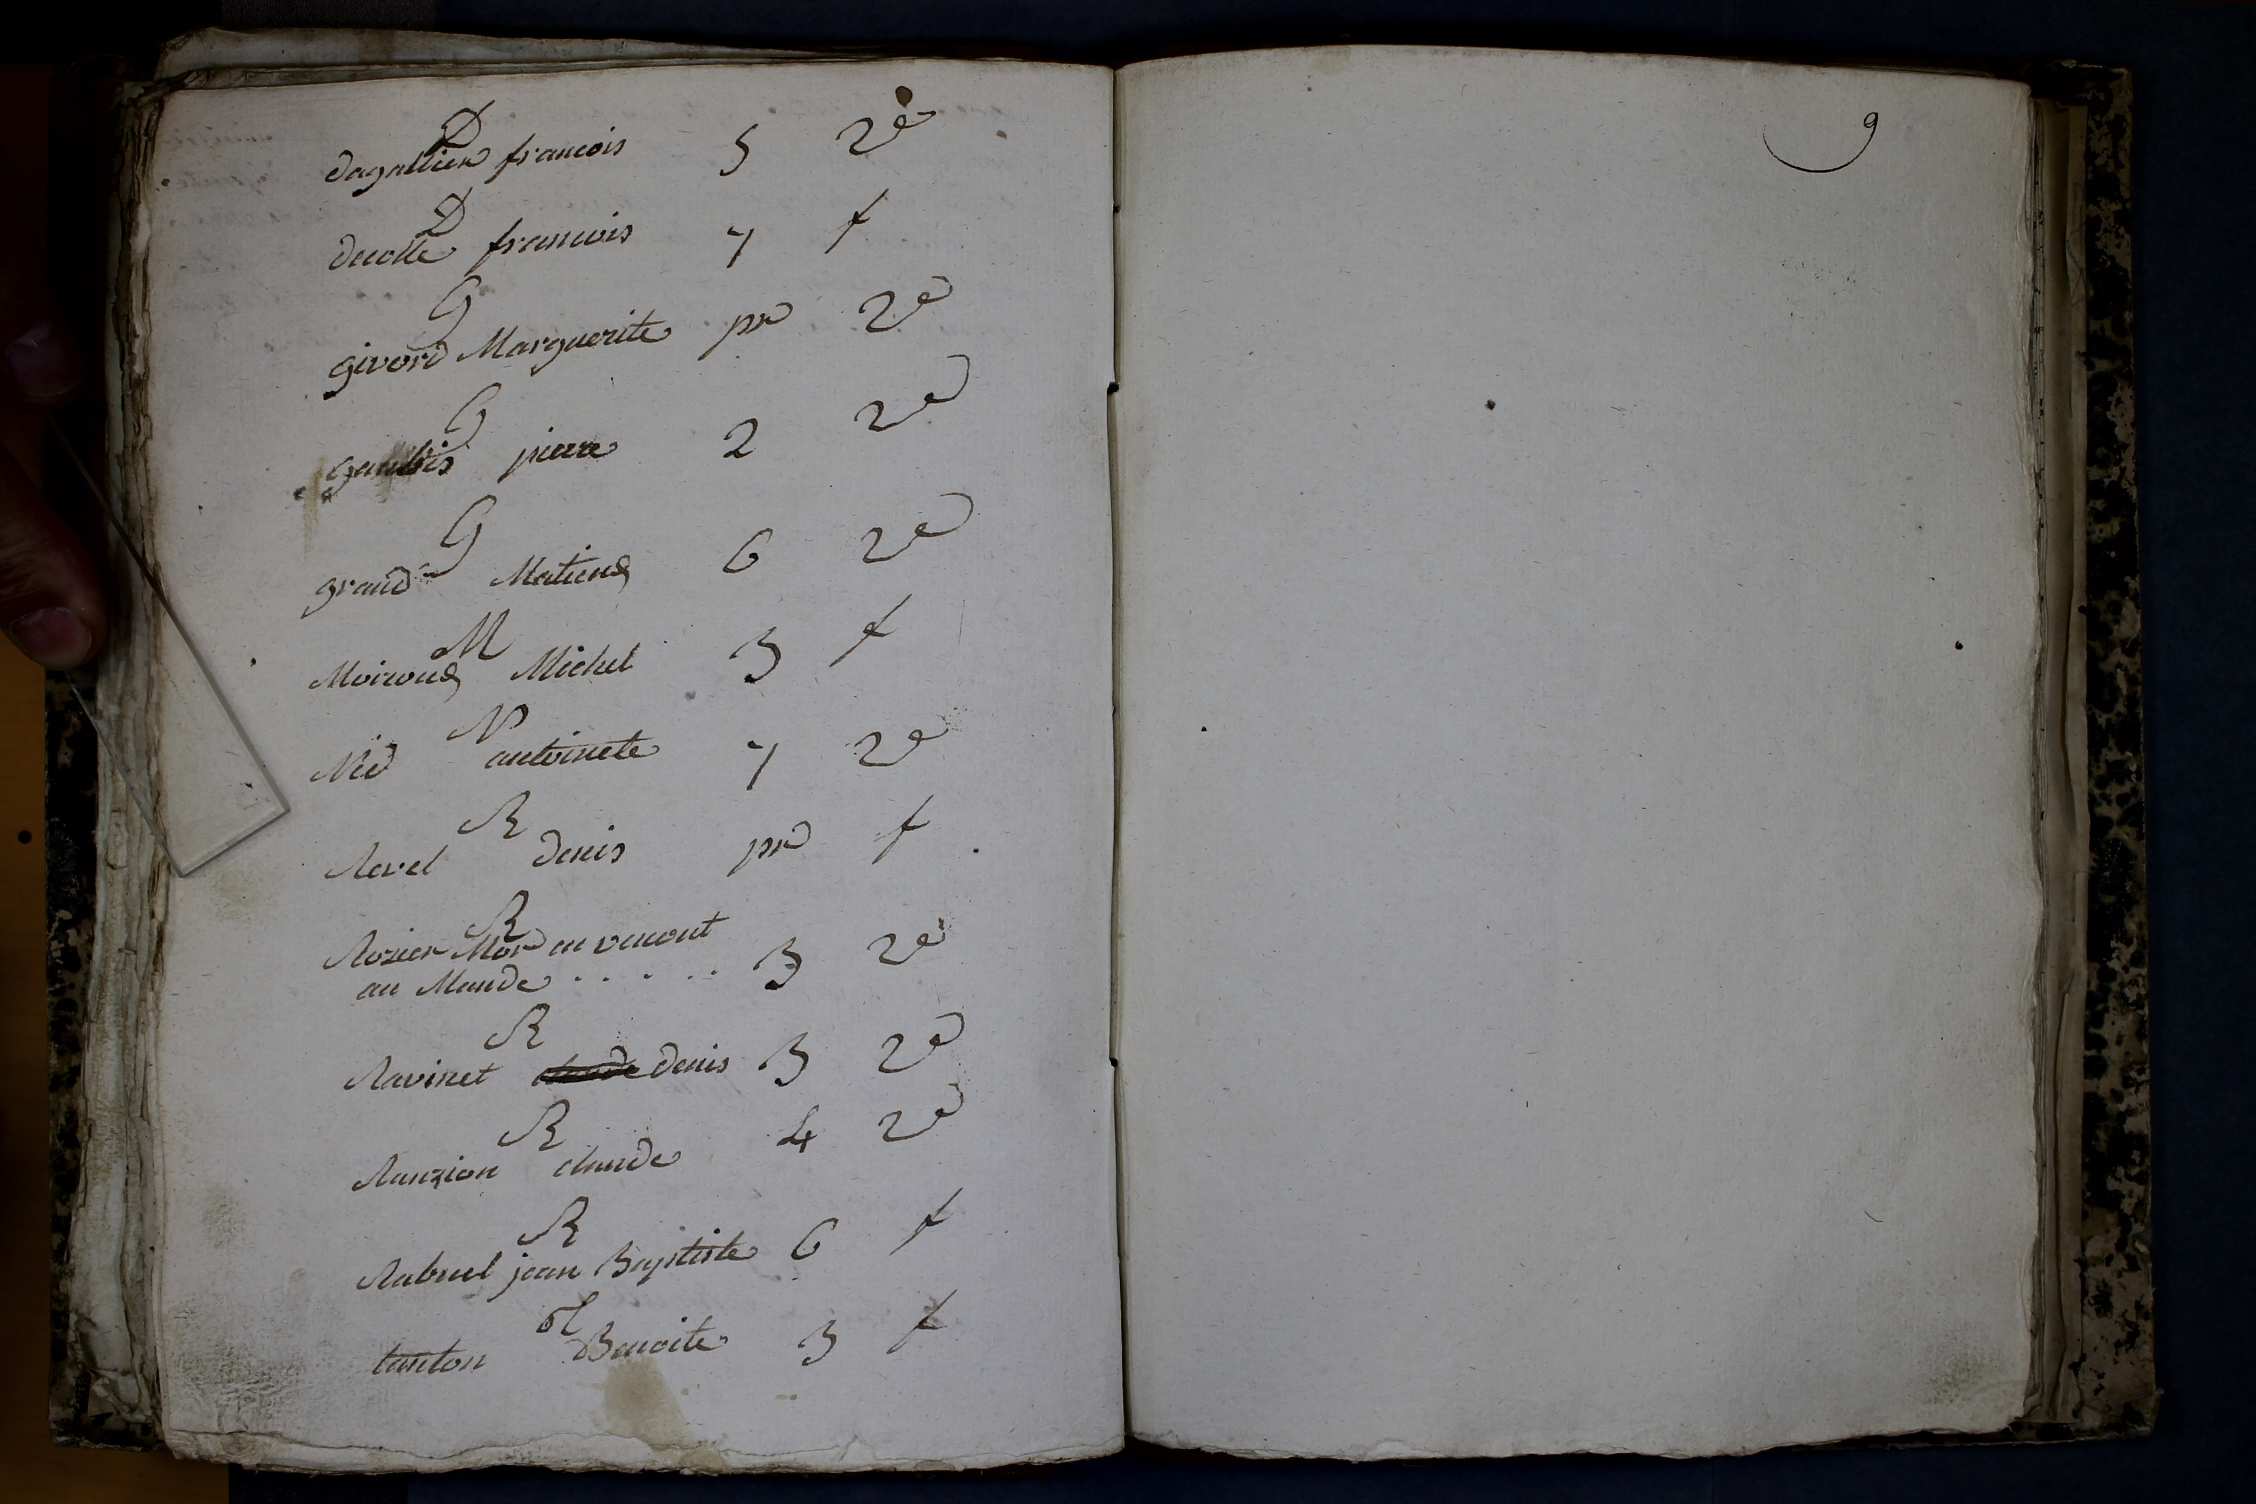 D
dagallier francois 5 2e
D
decolle francois 7 f
G
givord Marguerite pr 2e
G
pierre 2 2e
G
grand Matieu 6 2e
M
Moiroud Michel 3 f
N
Nid antoinete 7 2e
R
Revel denis pr f
R
Rozier Mor en venant
au Monde . . . . . . 3 2e
R
Ravinet claude denis 3 2e
R
Ranzion claude 4 2e
R
Rabuel jean Baptiste 6 f
t
tanton Benoite 3 f
9